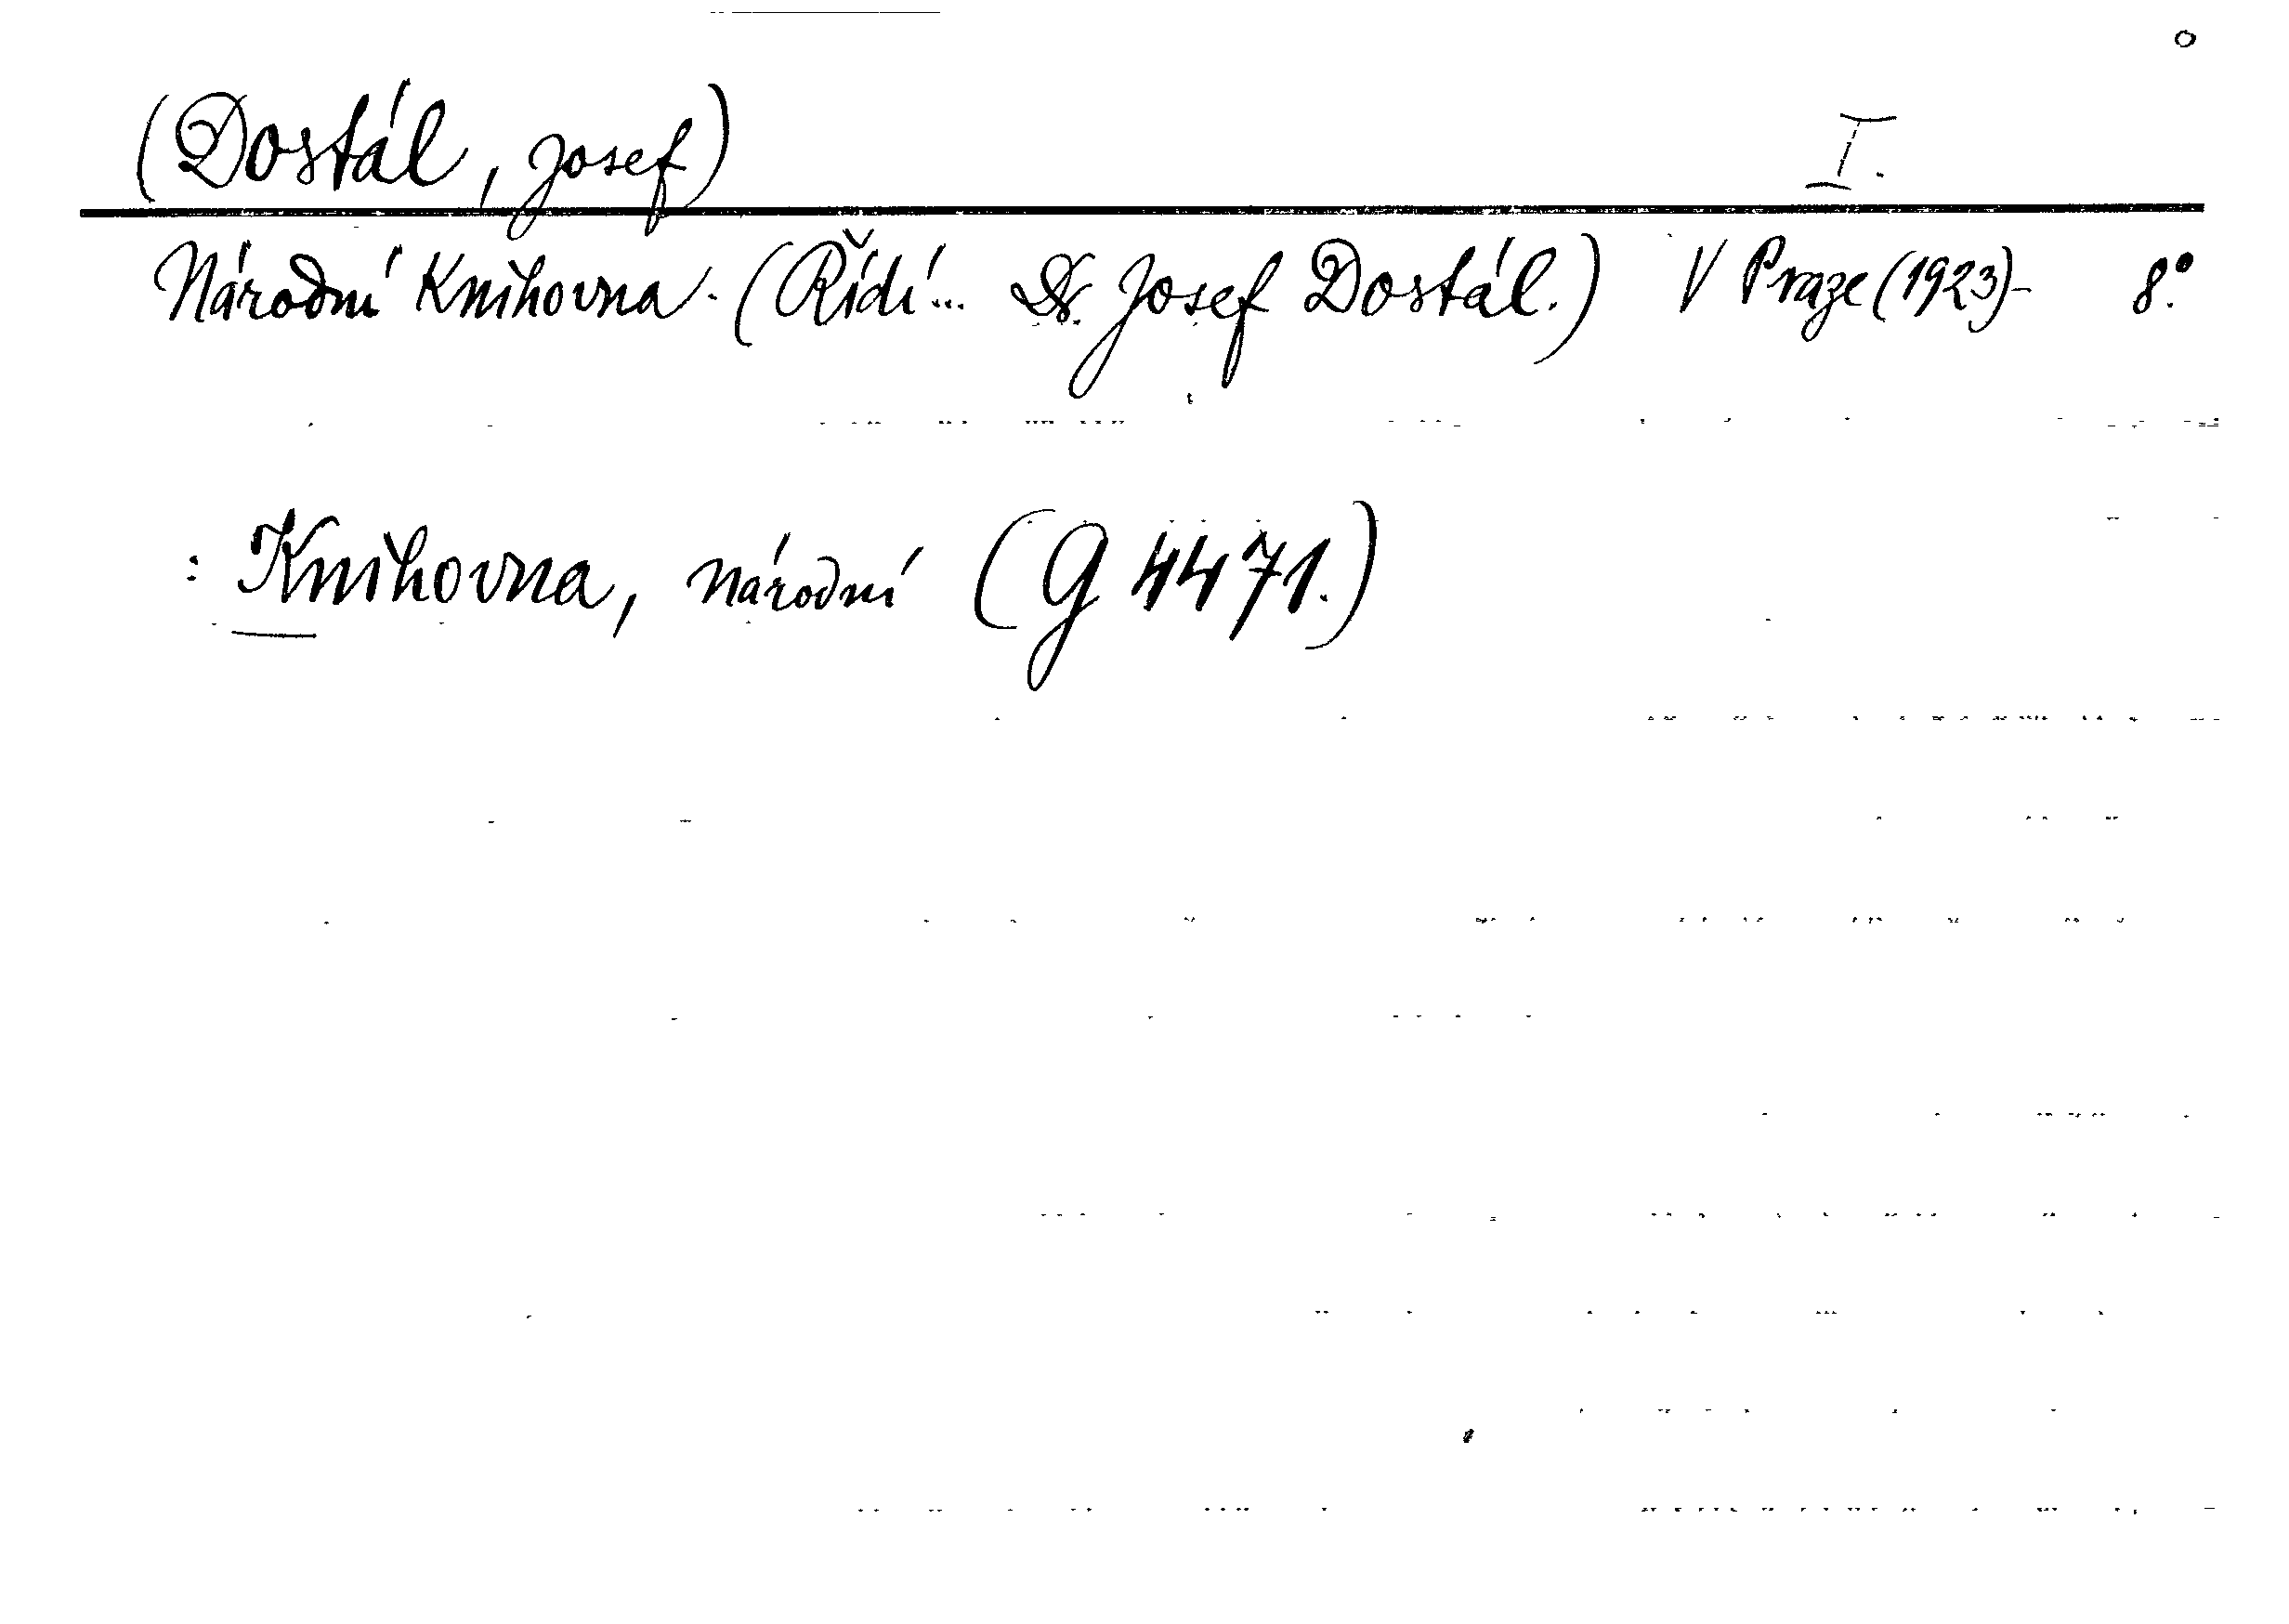 (Dostál, Josef) I.
Národní Knihovna. (Řídí... Dr. Josef Dostál.) V Praze (1923)- 8.°
: Knihovna, národní (G 4471.)